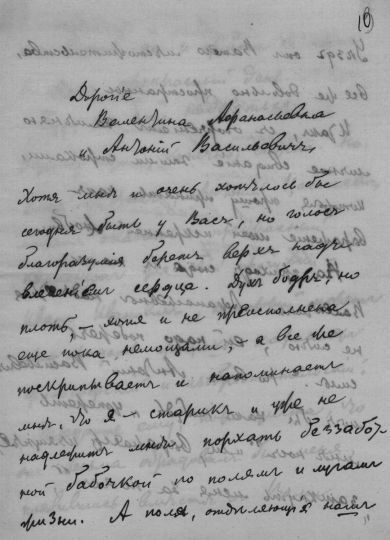 10
Дорогіе
Валентина Афанасьевна
и Антоній Васильевичъ,
Хотя мнѣ и очень хотѣлось бы
сегодня быть у Васъ, но голосъ
благоразумія беретъ верхъ надъ
влеченіемъ сердца. Духъ бодръ, но
плоть, – хотя и не преисполнена
еще пока немощами, а все же
поскрипываетъ и напоминаетъ
мнѣ, что я – старикъ и уже не
надлежитъ мнѣ порхать беззабот-
ной бабочкой по полямъ и лугамъ
жизни. А поля, отдѣляющія наши